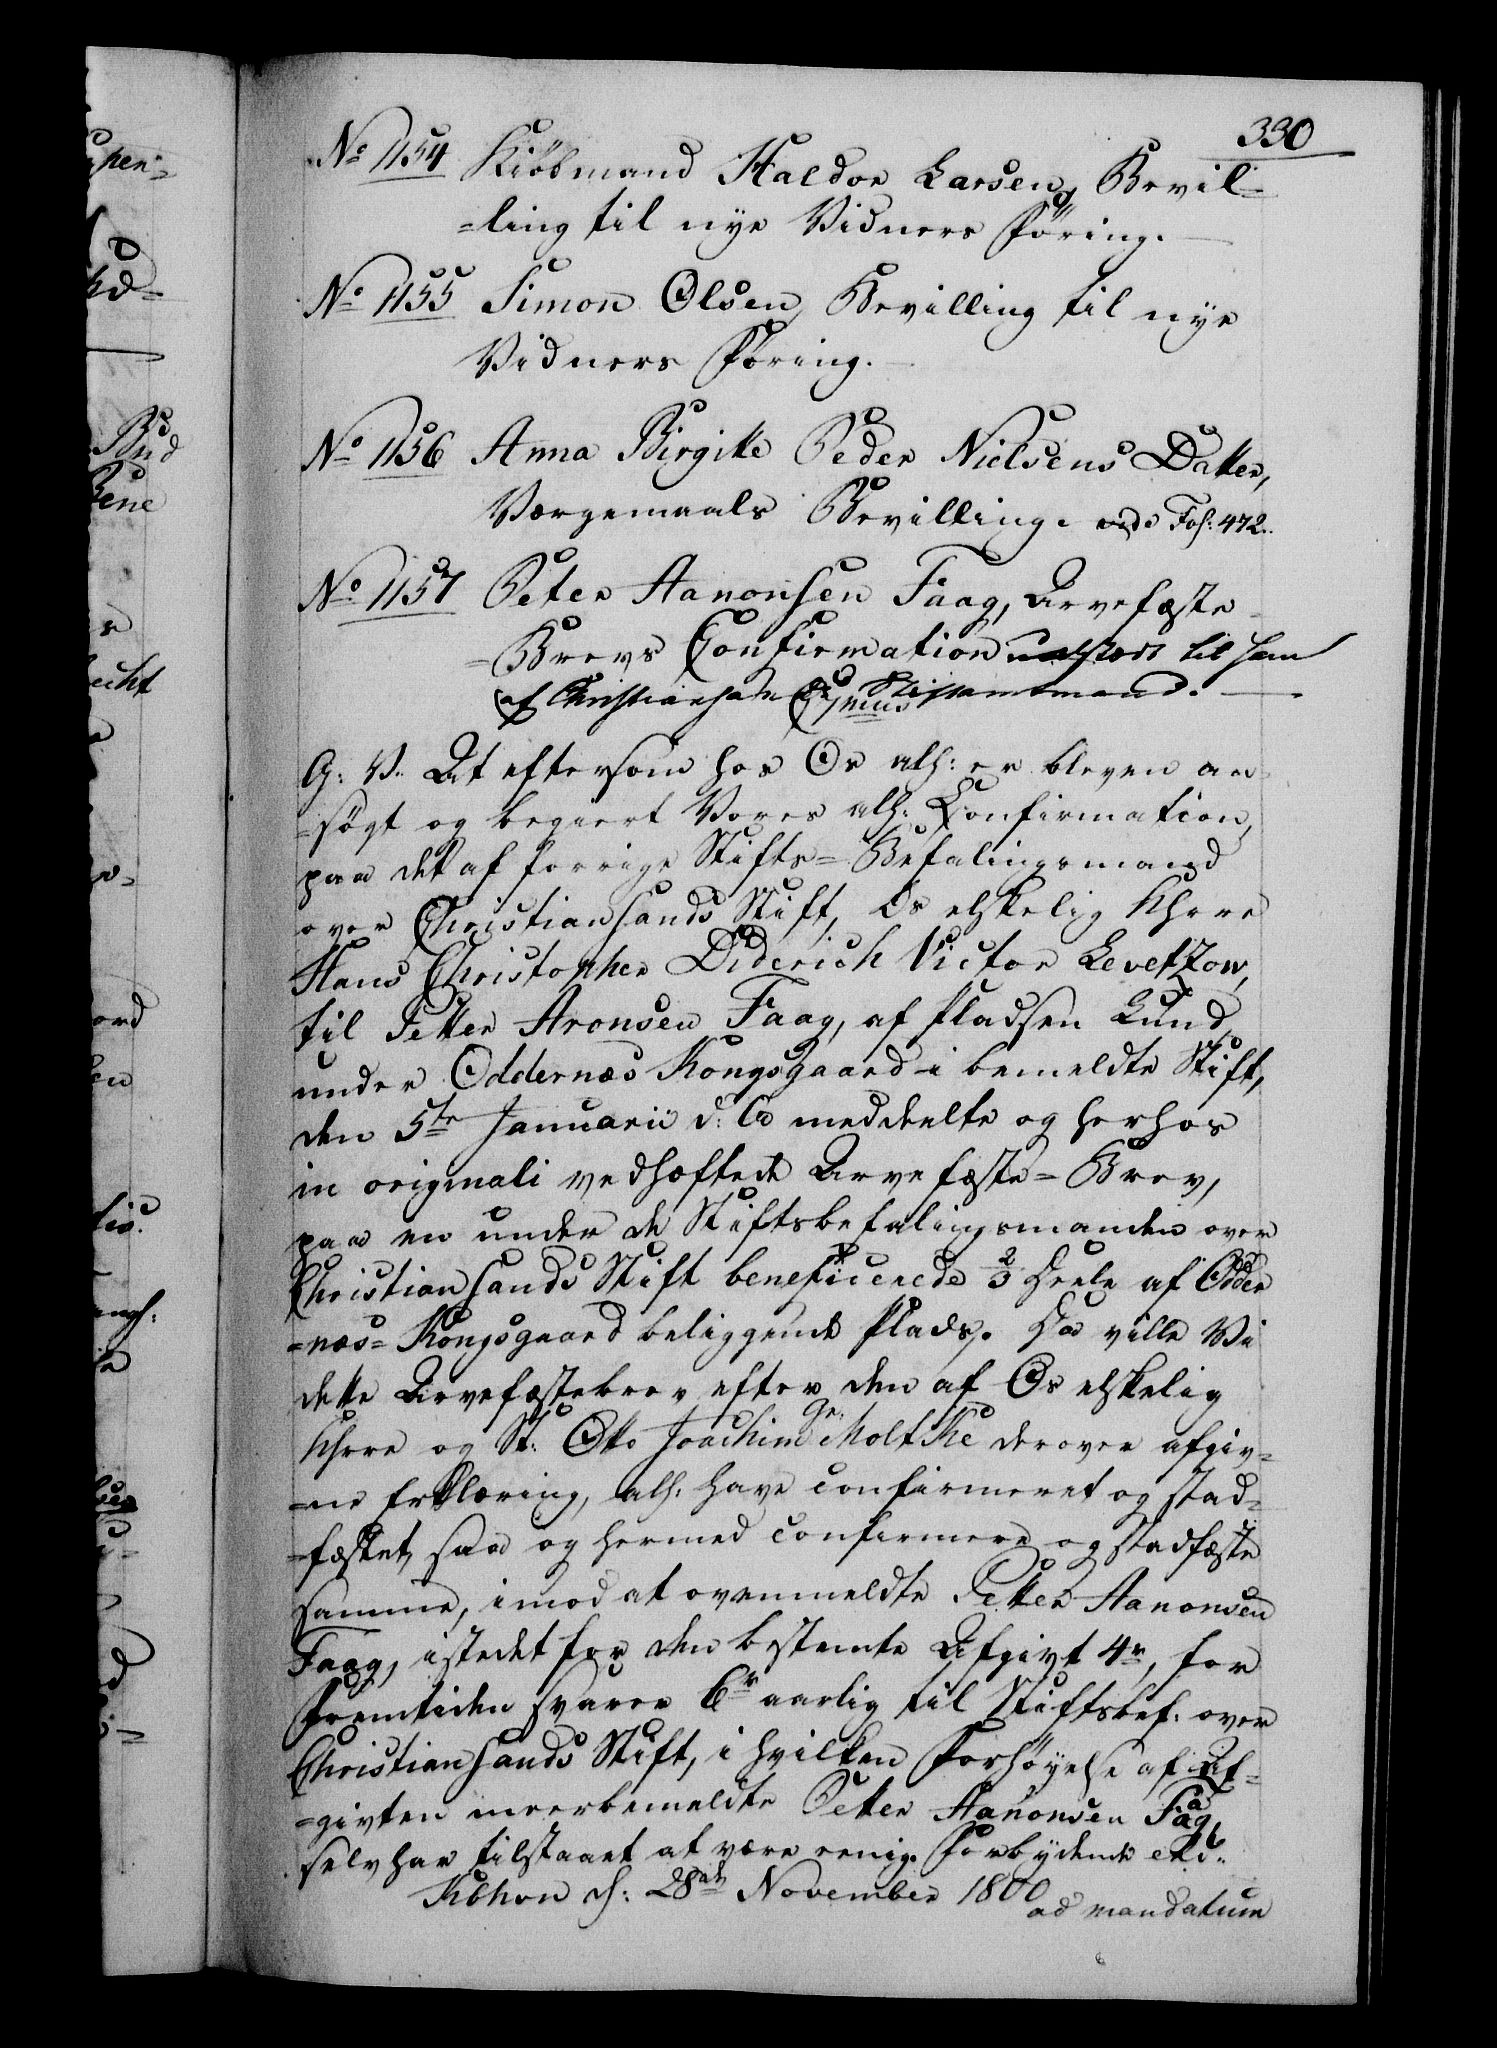 330
No 1154 Kiöbmand Haldor Larsen, Bevil-
-ling til nye Vidners Föring.
No 1155 Simon Olsen, Bevilling til nye
Vidners Föring.
No 1156 Anna Birgitte Peder Nielsens Datter,
Værgemaals Bevilling. vide Fol: 472.
No 1157 Peter Aanonsen Faag, Arvefæste
-Brevs Confirmation udstædt til ham
af Christiansands Stiftamtmand.
G: V: At eftersom hos Os allr: er bleven an-
-søgt og begiert Vores allr: Confirmation,
paa det af forrige Stifts-Befalingsmand
over Christiansands Stift, Os elskelig Hrr
Hans Christopher Diderich Victor Levetzow,
til Petter Aronsen Faag, af Pladsen Lund
under Oddernæs Kongsgaard i bemeldte Stift,
den 5te Januarii d: A meddeelte og herhos
in originali vedhæftede Arvefæste-Brev,
paa en under de Stiftsbefalingsmanden over
Christiansands Stift beneficerede 2/3 Deele af Odder
-næs-Kongsgaard beliggende Plads. Da ville Vi
dette Arvefæstebrev efter den af Os elskelig
Hrr og St: Otto Joachim Gr: Moltke derover afgiv-
-ne Erklæring, allr: have confirmeret og stad-
-fæstet, saa og hermed confirmere og stadfæste
samme, imod at ovenmeldte Petter Aanonsen
Faag, istedet for den bestemte Afgivt 4r, for
Fremtiden svarer 6r aarlig til Stiftsbef: over
Christiansands Stift, i hvilken Forhøyelse af Af-
-givten meerbemeldte Petter Aanonsen Faag,
selv har tilstaaet at være eenig. Forbydende etc:
Kbhvn d: 28de November 1800
ad mandatum